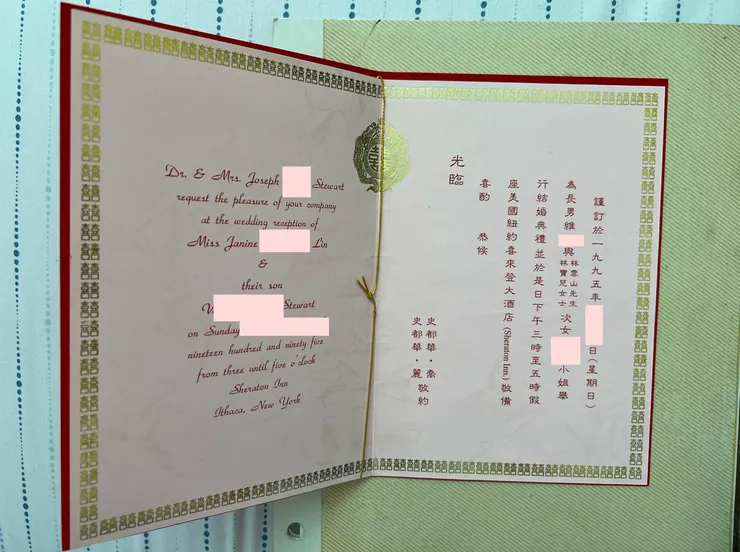 Dr. & Mrs. Joseph Stewart
request the pleasure of your company
at the wedding reception of
Miss Janine Lin
&
their son
W Stewart
on Sunday
nineteen hundred and ninety five
from three until five o'clock
Sheraton Inn
Ithaca, New York
謹訂於一九九五年 日(星期日)
為長男維 與 林雲山先生 林寶兒女士 次女 小姐舉
行結婚典禮並於是日下午三時至五時假
座美國紐約喜來登大酒店(Sheraton Inn)敬備
喜酌 恭候
光臨
史都華・喬
史都華・麗 敬約